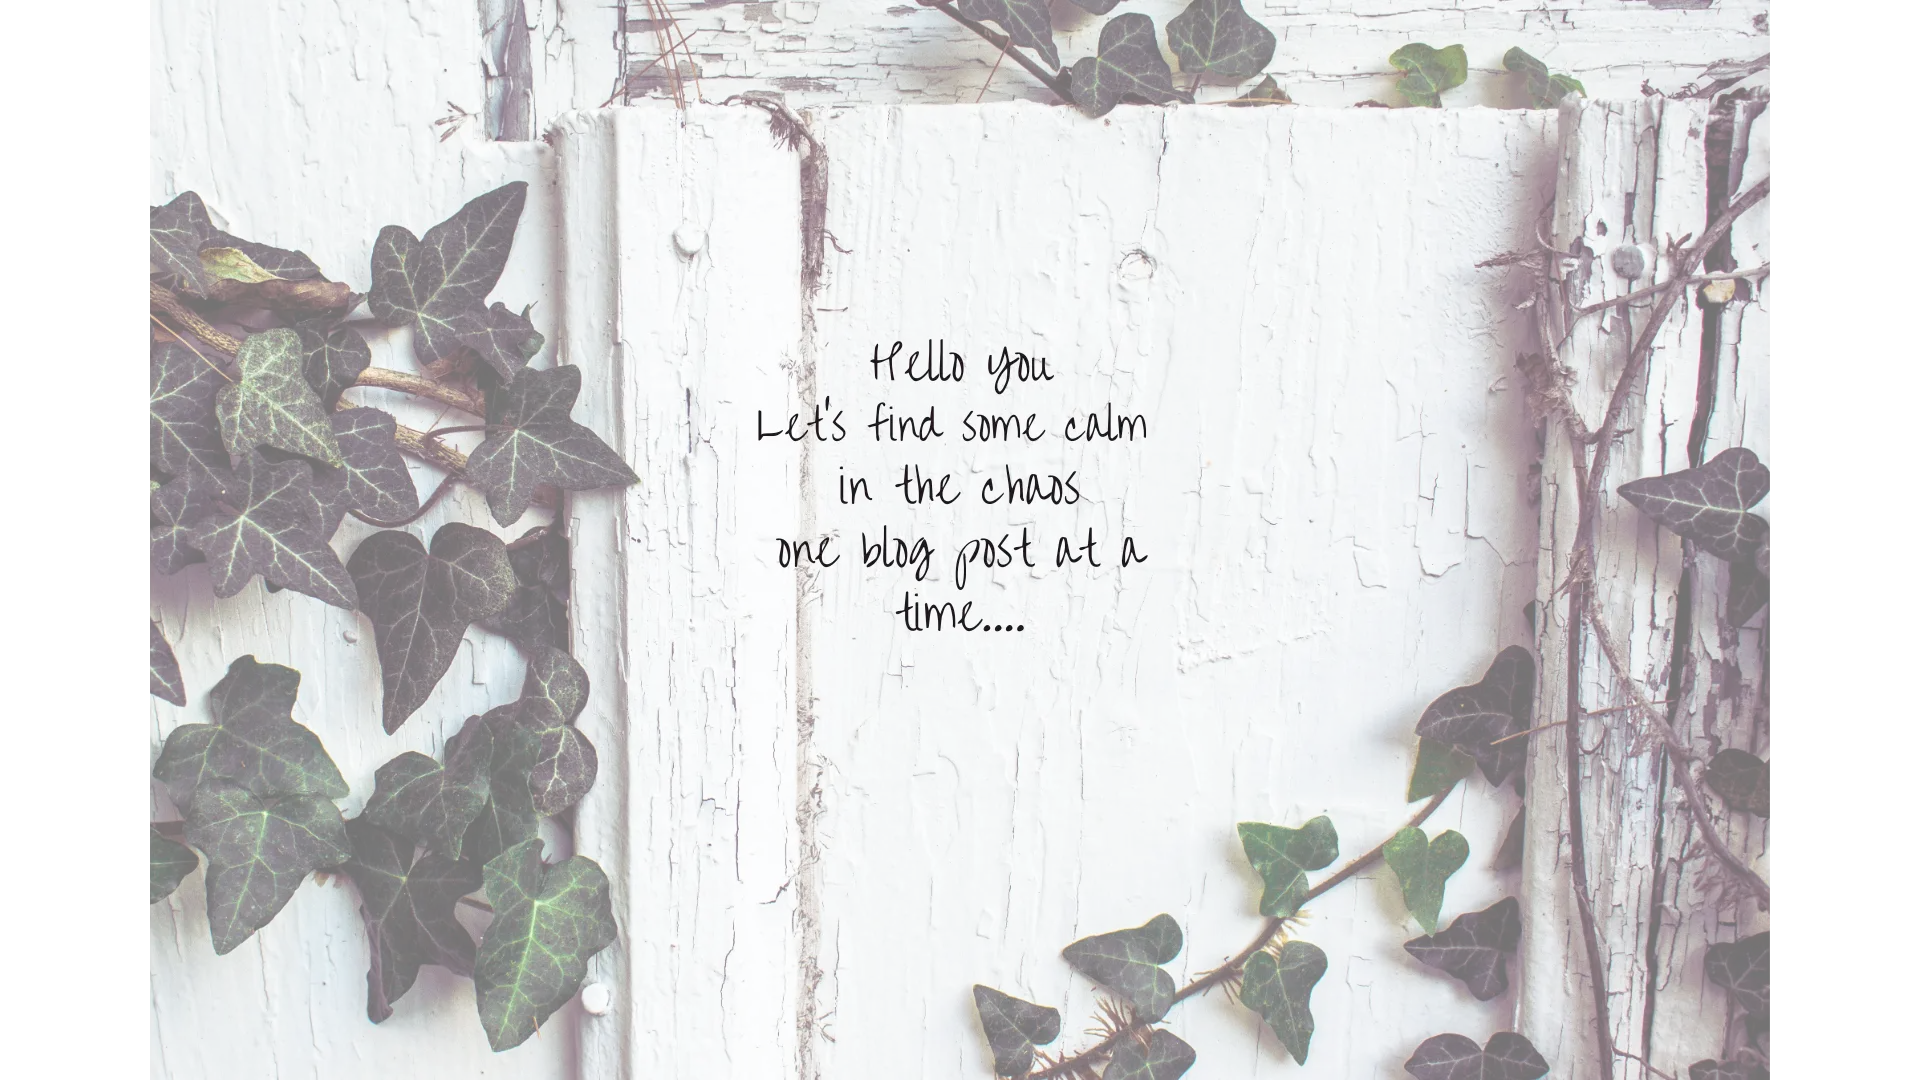 Hello you
Let's find some calm
in the chaos
one blog post at a
time....